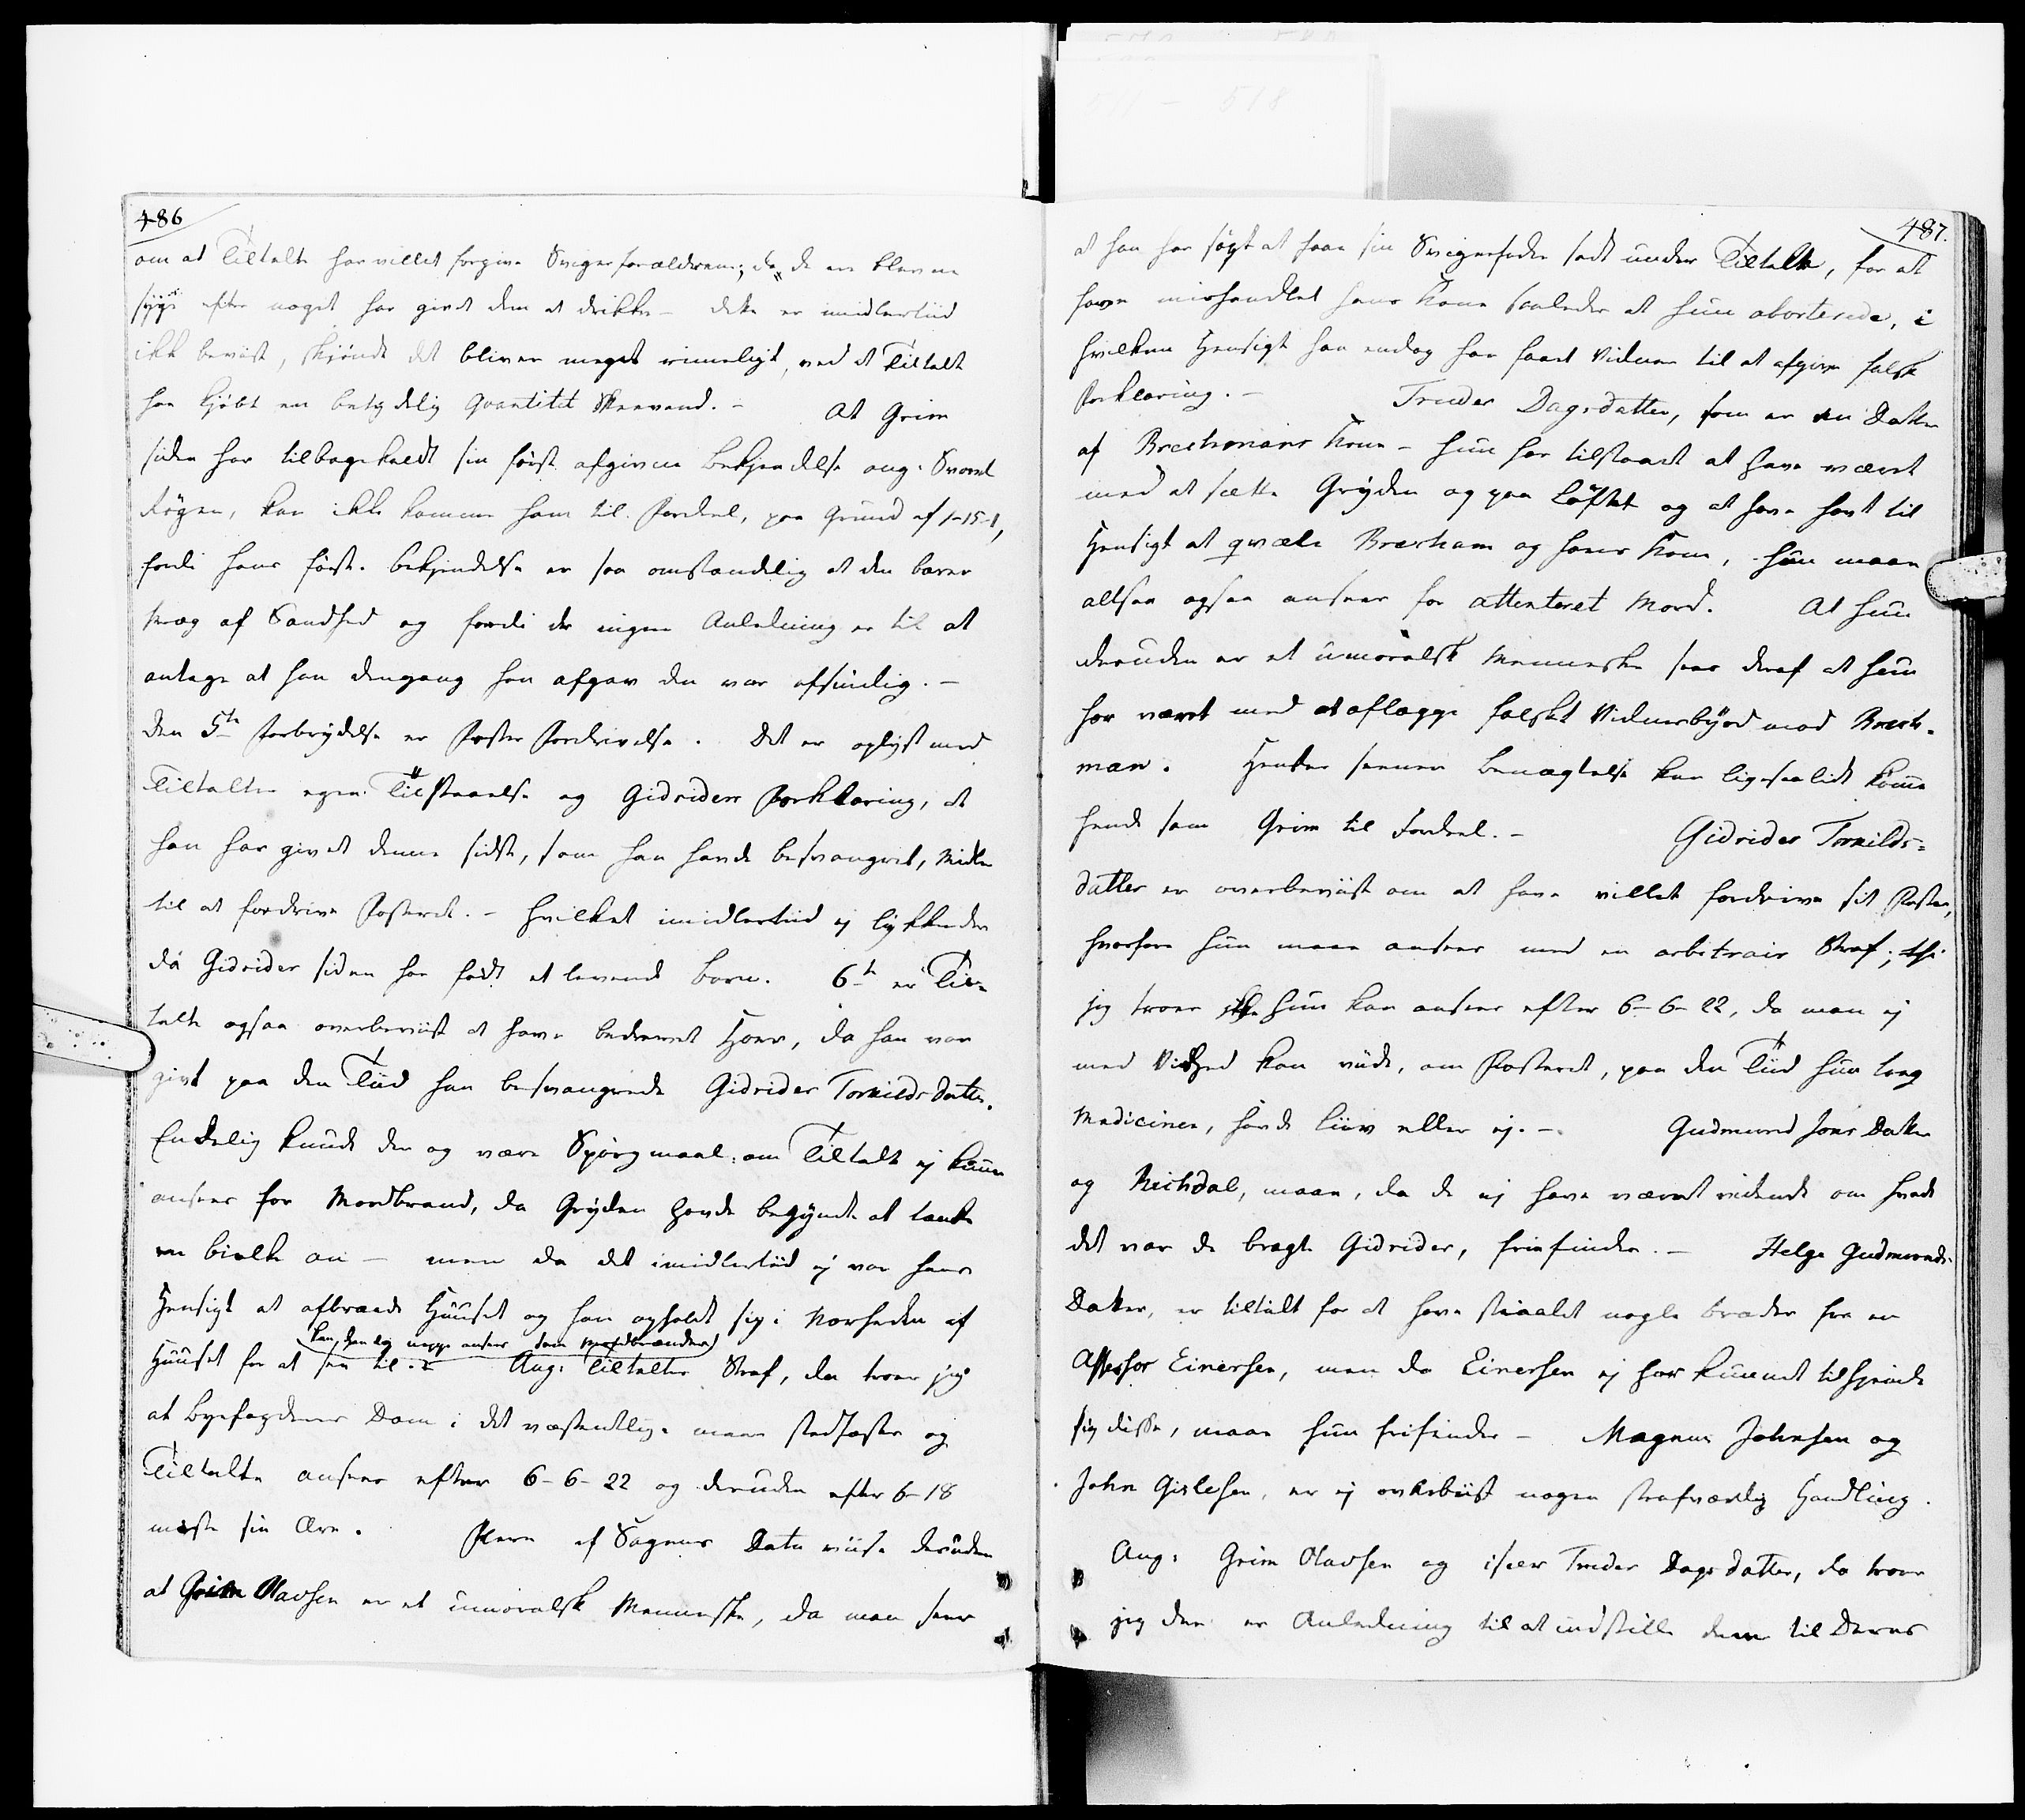 486
om at Tiltalte har villet forgive Svigerforældrene; da de ere blevne
syge efter noget har givet dem at drikke – dette er imidlertiid
ikke beviist, skjøndt det bliver meget rimeligt, ved at Tiltalte
har kjøbt en betydelig Qvantitet Skeevand. – At Grim
siden har tilbagekaldt sin først afgivne Bekjendelse ang: Svovel
Røgen, kan ikke komme ham til Fordeel, paa Grund af 1-15-1,
fordi hans første Bekjendelse er saa omstændelig at den bærer
Præg af Sandhed og fordi der ingen Anledning er til at
antage at han dengang han afgav den var afsindig. –
Den 5te Forbrydelse er Foster Fordrivelse. Det er oplyst med
Tiltaltes egen Tilstaaelse og Gidriders Forklaring, at
han har givet denne sidste, som han havde besvangret, Midler
til at fordrive Fosteret. – hvilket imidlertiid ej lykkedes
da Gidrider siden har født et levende Barn. 6te er Til-
talte ogsaa overbeviist at have bedrevet Hoer, da han var
givt paa den Tiid han besvangrede Gidrider Torkilds Datter.
Endelig kunde der og være Spørgmaal om Tiltalte ej kunne
ansees for Mordbrand, da Gryden havde begyndt at tænde
en Bielke an – men da det imidlertiid ej var hans
Hensigt at afbrænde Huuset og han opholdt sig i Nærheden af
kan han ej neppe ansees som Mordbrænder
Huuset for at see til. Ang: Tiltaltes Straf, da troer jeg
at Byefogdens Dom i det væsentlige maae stadfæstes og
Tiltalte ansees efter 6-6-22 og desuden efter 6-18
miste sin Ære. Flere af Sagens Data viise desuden
at Grim Olavsen er et umoralsk Menneske, da man seer
487.
at han har søgt at faae sin Svigerfader sadt under Tiltale, for at
have mishandlet hans Kone saaledes at hun aborterede, i
hvilken Hensigt han endog har faaet Vidner til at afgive falsk
Forklaring. – Truder Dagsdatter, som er en Datter
af Brechmans Kone – hun har tilstaaet at have været
med at sætte Gryden op paa Loftet og at have havt til
Hensigt at qvæle Brecham og hans Kone, hun maae
altsaa ogsaa ansees for attenteret Mord. At hun
desuden er et umoralsk Menneske sees deraf at hun
har været med at aflægge falsk Vidnesbyrd mod Brech-
man. Hendes senere Benægtelse kan ligesaalidt komme
hende som Grim til Fordeel. – Gidrider Torkilds-
datter er overbeviist om at have villet fordrive sit Foster,
hvorfore hun maae ansees med en arbitrair Straf; thi
jeg troer ikke hun kan ansees efter 6-6-22, da man ej
med Vished kan viide, om Fosteret, paa den Tiid hun tog
Medicinen, havde Liv eller ej. – Gudmund Jons Datter
og Reichdal, maae, da de ej have været vidende om hvad
det var de bragte Gidrider, friefindes. – Helge Gudmunds-
Datter, er tiltalt for at have stiaalet nogle Bræder fra en
Assessor Einersen, men da Einersen ej har kunnet tilhjemle
sig disse, maae hun frifindes – Magnus Johnsen og
John Gislesen, er ej overbeviist nogen strafværdig Handling.
Ang: Grim Olavsen og især Truder Dagsdatter, da troer
jeg der er Anledning til at indstille dem til Deres